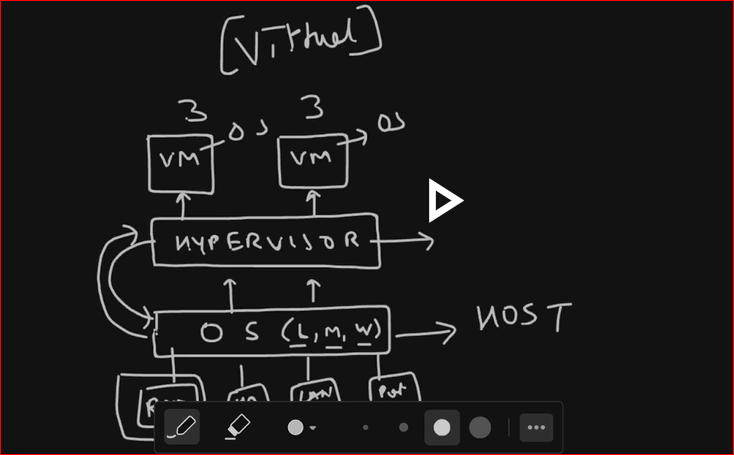 [Virtual]
3 3
VM OS VM OS
HYPERVISOR
OS (L, M, W) HOST
LAN Port